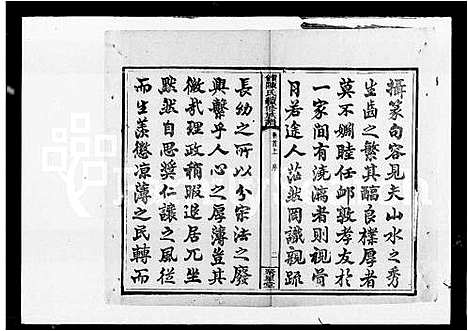 攝篆句容見夫山水之秀
生齒之繁其醞良樸厚者
莫不姻睦任邮敦孝友於
一家間有澆漓者則視骨
月若途人茫然罔識親疏
陳氏
卷首上 序
二
聚星堂
長幼之所以分宗法之廢
興繫乎人心之厚薄豈其
微哉理政稍暇退居兀坐
默然自思奬仁讓之風從
而生羨懲凉薄之民轉而